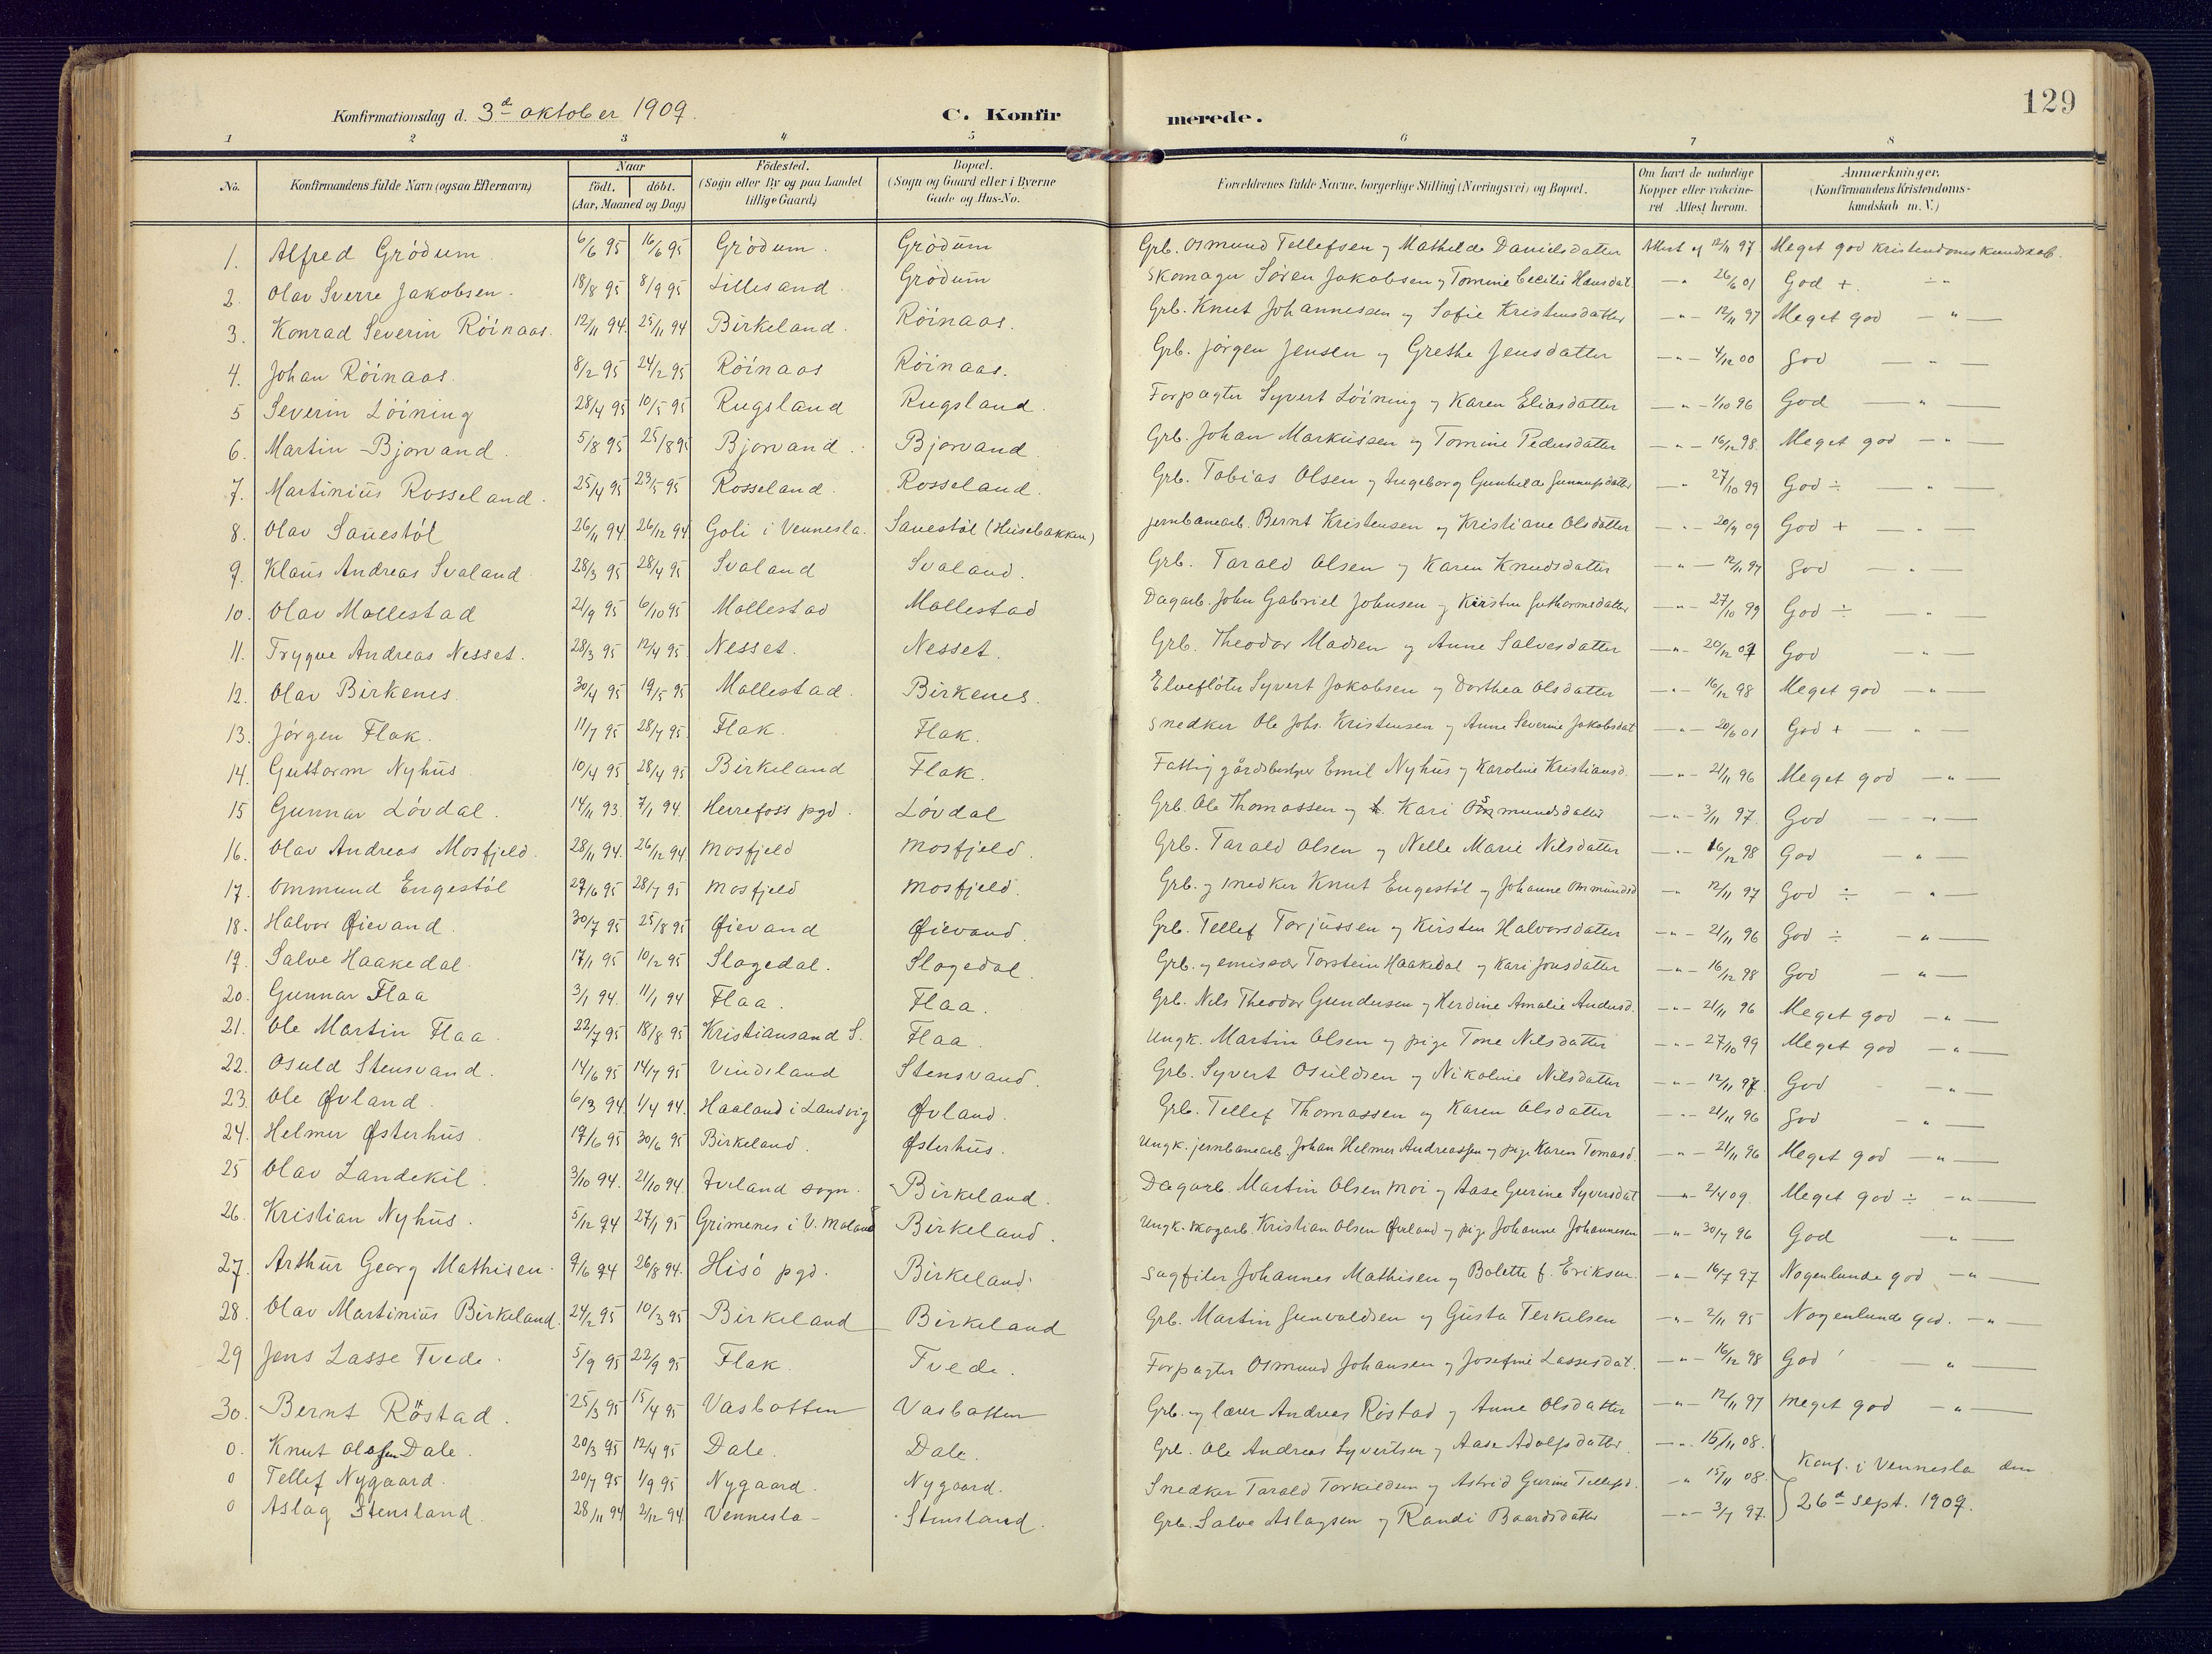 129
Konfirmationsdag d. 3d oktober 1909. C. Konfirmerede.
1 2 3 4 5 6 7 8
No. Konfirmandens fulde Navn (ogsaa Efternavn) Naar födt. döbt. (Aar, Maaned og Dag) Födested. (Sogn eller By og paa Landet tillige Gaard) Bopæl. (Sogn og Gaard eller i Byerne Gade og Hus-No. Forældrenes fulde Navne, borgerlige Stilling (Næringsvei) og Bopæl. Om havt de naturlige Kopper eller vakcineret Attest herom. Anmærkninger. (Konfirmandens Kristendomskundskab m. V.)
1. Alfred Grödum. 6/6 95 16/6 95 Grödum. Grödum Grb. Osmund Tellefsen og Mathilde Danielsdatter Attest af 12/11 97. Meget god kristendomskundskab.
2. Olav Sverre Jakobsen. 18/8 95 8/9 95 Lillesand. Grödum Skomager Sören Jakobsen og Tomine Cecilie Hansdat. — " 26/6 01 God +. — " —
3. Konrad Severin Röinaas. 12/11 94. 25/11 94 Birkeland. Röinaas. Grb. Knut Johannessen og Sofie Kristensdatter — " — 12/11 97 Meget god — " —
4. Johan Röinaas. 8/2 95 24/2 95 Röinaas Röinaas. Grb. Jörgen Jensen og Grethe Jensdatter — " — 4/12 00 God — " —
5 Severin Löining 28/4 95 10/5 95 Rugsland Rugsland. Forpagter Syvert Löining og Karen Eliasdatter — " — 1/10 96 God — " —
6. Martin Bjorvand. 5/8 95 25/8 95 Bjorvand. Bjorvand. Grb. Johan Markussen og Tomine Pedersdatter — " — 16/12 98. Meget god — " —
7. Martinius Rosseland. 25/4 95 23/5 95 Rosseland. Rosseland. Grb. Tobias Olsen og Ingeborg Gunhilde Gunnufsdatter — " 27/10 99 God ÷ — " —
8. Olav Sauestöl 26/11 94. 26/12 94 Goli i Vennesla. Sauestöl (Heisebakken) jernbanearb. Bernt Kristensen og Kristiane Olsdatter — " — 20/9 09 God + — " —
9. Klaus Andreas Svaland 28/3 95 28/4 95 Svaland Svaland. Grb. Tarald Olsen og Karen Knudsdatter — " — 12/11 97 God — " —
10. Olav Mollestad 21/9 95 6/10 95 Mollestad Mollestad Dagarb. John Gabriel Johnsen og Kirsten Guthormsdatter — " — 27/10 99 God ÷ — " —
11. Trygve Andreas Nesset. 28/3 95 12/4 95. Nesset. Nesset. Grb. Theodor Madsen og Anne Salvesdatter — " — 20/12 07 God — " —
12. Olav Birkenes. 30/4 95 19/5 95 Mollestad. Birkenes. Elveflöter Syvert Jakobsen og Dorthea Olsdatter — " — 16/12 98 Meget god — " —
13. Jörgen Flak. 11/7 95 28/7 95. Flak. Flak. Snedker Ole Johs. Kristensen og Anne Severine Jakobsdat — " — 20/6 01 God + — " —
14. Guttorm Nyhus 10/4 95 28/4 95 Birkeland Flak. Fattiggårdsbestyr Emil Nyhus og Karoline Kristiansd. — " — 21/11 96 Meget god — " —
15 Gunnar Lövdal. 14/11 93. 7/1 94. Herrefoss pgd. Lövdal Grb. Ole Thomassen og Kari Osmundsdatter — " — 3/11 97. God — " —
16. Olav Andreas Mosfjeld. 28/11 94. 26/12 94. Mosfjeld Mosfjeld. Grb. Tarald Olsen og Nelle Marie Nilsdatter — " — 16/12 98 God — " —
17. Ommund Engestöl 27/6 95 28/7 95 Mosfjeld Mosfjeld. Grb. og snedker Knut Engestöl og Johanne Ommundsd — " 12/11 97 God ÷ — " —
18. Halvor Øievand. 30/7 95 25/8 95 Øievand Øievand. Grb. Tellef Torjussen og Kirsten Halvorsdatter — " — 21/11 96 God ÷ — " —
19. Salve Haakedal. 17/1 95 10/2 95 Slagedal. Slagedal. Grb. og emissær Torstein Haakedal og Kari Jonsdatter — " — 16/12 98 God — " —
20. Gunnar Flaa 3/1 94. 11/1 94 Flaa. Flaa. Grb. Nils Theodor Gundersen og Herdine Amalie Andersd. — " — 21/11 96 Meget god — " —
21. Ole Martin Flaa. 22/7 95 18/8 95 Kristiansand S. Flaa. Ungk. Martin Olsen og pige Tone Nilsdatter — " — 27/10 99 Meget god — " —
22. Osuld Stensvand. 14/6 95 14/7 95 Vindsland Stensvand. Grb. Syvert Osuldsen og Nikoline Nilsdatter — " — 12/11 97. God — " —
23. Ole Øvland. 6/3 94. 1/4 94. Haaland i Landvig Øvland. Grb. Tellef Thomassen og Karen Olsdatter — " — 21/11 96 God — " —
24. Helmer Østerhus. 19/6 95 30/6 95 Birkeland. Østerhus. Ungk. jernbanearb. Johan Helmer Andreassen og pige Karen Tomasd. — " — 21/11 96 Meget god — " —
25 Olav Landekil. 3/10 94. 21/10 94. Iveland sogn. Birkeland. Dagarb. Martin Olsen Moi og Aase Gurine Syversdat — " — 2/4 09. Meget god ÷ — " —
26. Kristian Nyhus. 5/12 94 27/1 95 Grimenes i V. Moland Birkeland. Ungk. skogarb. Kristian Olsen Øvland og pige Johanne Johannesen — " — 30/7 96 God — " —
27. Arthur Georg Mathisen. 9/6 94 26/8 94. Hisö pgd. Birkeland. Sagfiler Johannes Mathisen og Bolette f. Eriksen. — " — 16/7 97 Nogenlunde god — " —
28. Olav Martinius Birkeland. 24/2 95 10/3 95 Birkeland Birkeland Grb. Martin Gunvaldsen og Gusta Terkelsen — " — 2/11 95 Nogenlunde god. — " —
29 Jens Lasse Tvede. 5/9 95 22/9 95 Flak. Tvede. Forpagter Osmund Johansen og Josefine Lassesdat. — " — 16/12 98 God — " —
30. Bernt Röstad. 25/3 95 15/4 95 Vasbotten Vasbotten Grb. og lærer Andreas Röstad og Anne Olsdatter — " — 12/11 97 Meget god — " —
0. Knut Olafsen Dale. 20/3 95 12/4 95 Dale. Dale. Grb. Ole Andreas Syvertsen og Aase Adolfsdatter. — " — 15/11 08.
0 Tellef Nygaard. 20/7 95 1/9 95 Nygaard. Nygaard. Snedker Tarald Torkildsen og Astrid Gurine Tellefsd. — " 15/11 08. Konf. i Vennesla den
0 Aslag Stensland. 28/11 94 2/12 94. Vennesla — Stensland. Grb. Salve Aslagsen og Randi Baardsdatter — " — 3/7 97. } 26d sept. 1909.